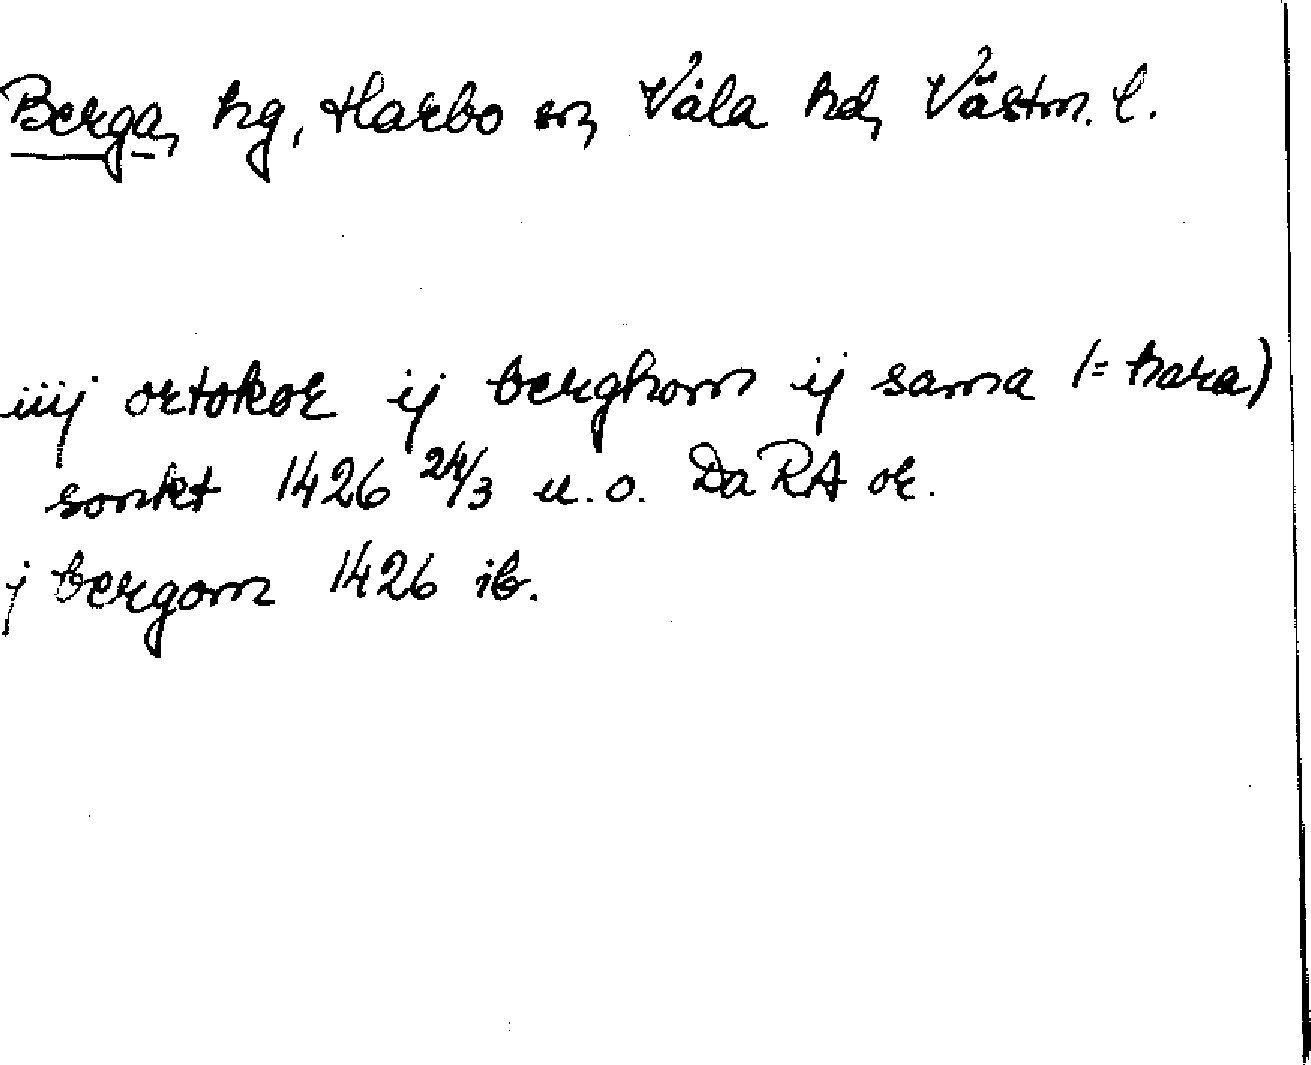 Berga, hg, Harbo sn, Våla hd, Västm. l.
iiij ortokor ij berghom ij sama (= hara)
sonkt 1426 24/3 u.o. Da RA or.
j bergom 1426 ib.